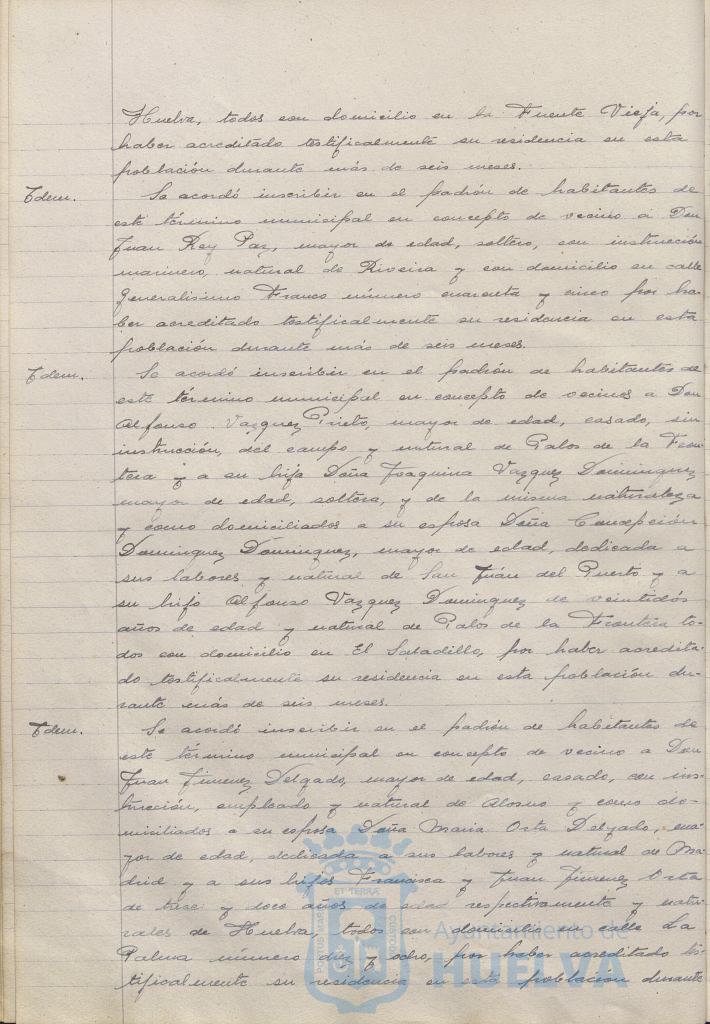 Huelva, todos con domicilio en la Fuente Vieja, por
haber acreditado testificalmente su residencia en esta
población durante más de seis meses.
Idem. Se acordó inscribir en el padrón de habitantes de
este término municipal en concepto de vecino a Don
Juan Rey Paz, mayor de edad, soltero, con instrucción
marinero, natural de Riveira y con domicilio en calle
Generalisimo Franco número cuarenta y cinco por ha-
ber acreditado testificalmente su residencia en esta
población durante más de seis meses.
Idem. Se acordó inscribir en el padrón de habitantes de
este término municipal en concepto de vecinos a Don
Alfonso Vazquez Prieto, mayor de edad, casado, sin
instrucción, del campo y natural de Palos de la Fron-
tera y a su hija Doña Joaquina Vazquez Dominguez
mayor de edad, soltera, y de la misma naturaleza
y como domiciliados a su esposa Doña Concepción
Dominguez Dominguez, mayor de edad, dedicada a
sus labores y natural de San Juán del Puerto y a
su hijo Alfonso Vazquez Dominguez de veintidós
años de edad y natural de Palos de la Frontera to-
dos con domicilio en El Saladillo, por haber acredita-
do testificalmente su residencia en esta población du-
rante más de seis meses.
Idem. Se acordó inscribir en el padrón de habitantes de
este término municipal en concepto de vecino a Don
Juan Jimenez Delgado, mayor de edad, casado, con ins-
trucción, empleado y natural de Alosno y como do-
miciliados a su esposa Doña Maria Orta Delgado, ma-
yor de edad, dedicada a sus labores y natural de Ma-
drid y a sus hijos Francisca y Juan Jimenez Orta
de trece y doce años de edad respectivamente y natu-
rales de Huelva, todos con domicilio en calle La
Palma número diez y ocho, por haber acreditado tes-
tificalmente su residencia en esta población durante
PORTUS MARIS ET TERRAE CUSTODIA
Ayuntamiento de
HUELVA